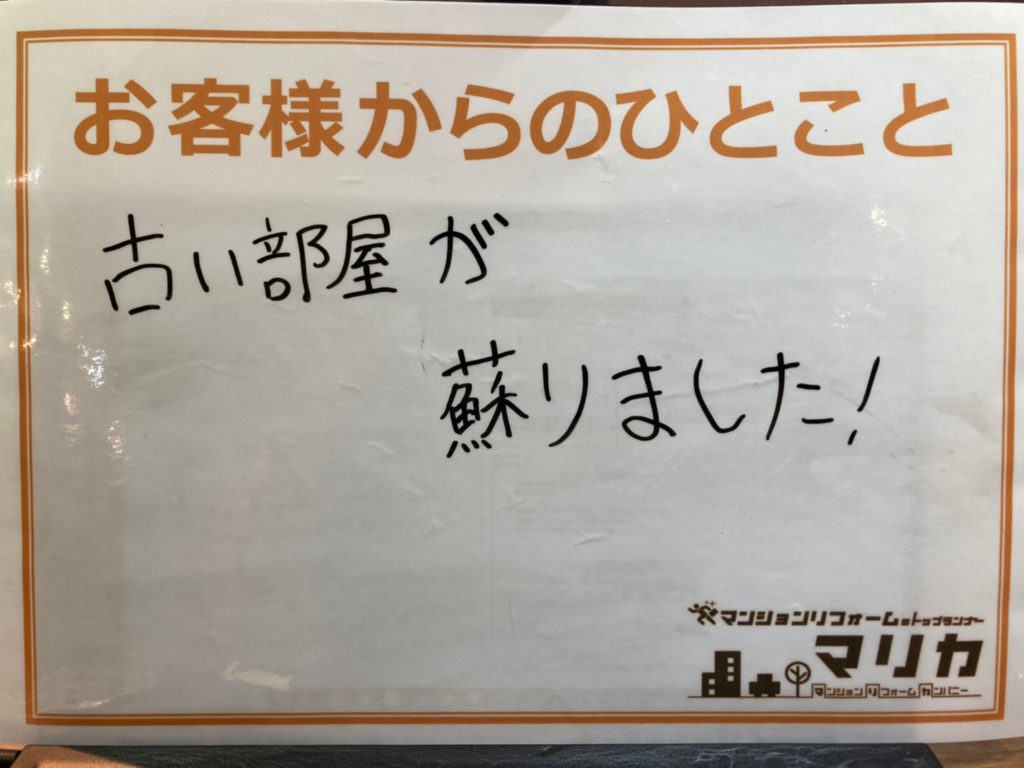 お客様からのひとこと
古い部屋が
蘇りました!
マンションリフォームのトップランナー
マリカ
マンションリフォームカンパニー